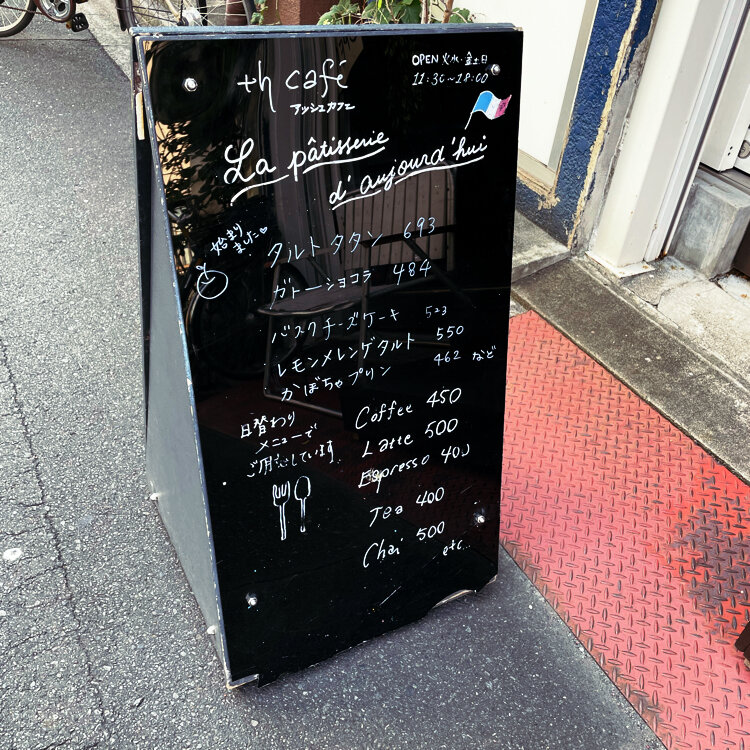 th café
アッシュカフェ
OPEN 火水・金土日
11:30~18:00
La pâtisserie
d'aujourd'hui
始まり
ました
タルトタタン 693
ガトーショコラ 484
バスクチーズケーキ 523
レモンメレンゲタルト 550
かぼちゃプリン 462 など
日替わり
メニューで
ご用意しています
Coffee 450
Latte 500
Espresso 400
Tea 400
Chai 500
etc..